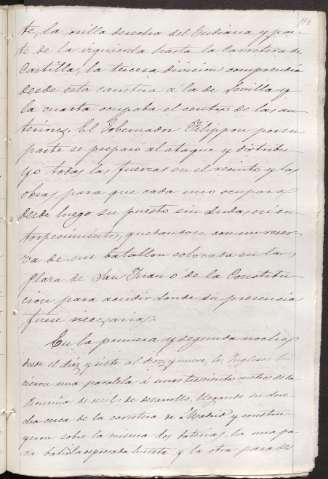 te, la orilla derecha del Guadiana y par-
te de la izquierda hasta la Carretera de
Castilla, la tercera division comprendia
desde esta carretera a la de Sevilla y
la cuarta ocupaba el centro de las an-
teriores. El Gobernador Filippon por su
parte se preparó al ataque y distribu-
yó todas las fuerzas en el recinto y las
obras para que cada uno ocupara
desde luego su puesto sin dudas ni en-
torpecimientos, quedandose con una reser-
va de un batallon colocada en la
Plaza de San Juan o de la Constitu-
cion para acudir donde su presencia
fuese necesaria.
En la primera y segunda noches
desde el diez y siete al diez y nueve, los Ingleses hi-
cieron una paralela á unos trescientos metros de la
de mil de desarrollo, llegando su
cerca de la carretera de Madrid y construy-
eron sobre la misma dos baterias, la una pa-
ra batir y la otra para